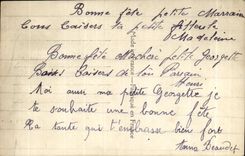 Bonne fête petite Marraine
Tous baisers ta petite
Madeleine
Bonne fête petite Georgette
Baisers de ton Parrain
Henri
Moi aussi ma petite Georgette je
te souhaite une bonne fête
Ta tante qui t'embrasse bien fort